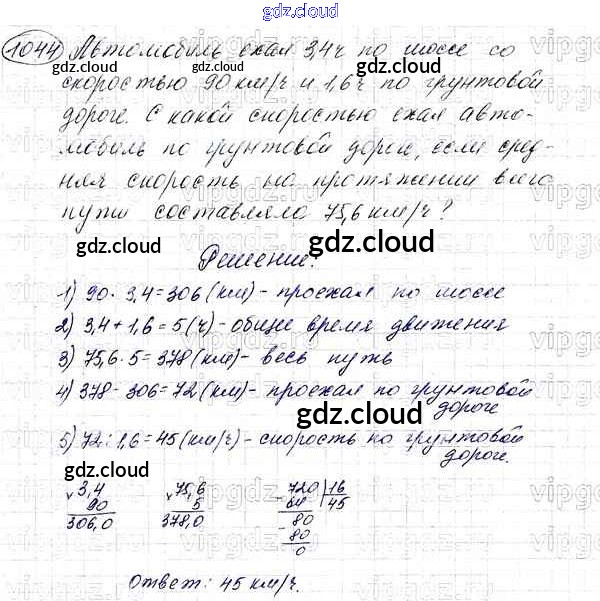 gdz.cloud
1044 Автомобиль ехал 3,4 ч по шоссе со
gdz.cloud gdz.cloud
скоростью 90 км/ч и 1,6 ч по грунтовой
дороге. С какой скоростью ехал авто-
мобиль по грунтовой дороге, если сред-
няя скорость на протяжении всего
пути составляла 75,6 км/ч?
gdz.cloud gdz.cloud
Решение:
1) 90 · 3,4 = 306 (км) - проехал по шоссе
2) 3,4 + 1,6 = 5 (ч) - общие время движения
3) 75,6 · 5 = 378 (км) - весь путь
4) 378 - 306 = 72 (км) - проехал по грунтовой
дороге
gdz.cloud
5) 72 : 1,6 = 45 (км/ч) - скорость по грунтовой
дороге.
gdz.cloud gdz.cloud
× 3,4 × 75,6 - 720 16
90 5 64 45
306,0 378,0 - 80
80
0
Ответ: 45 км/ч.